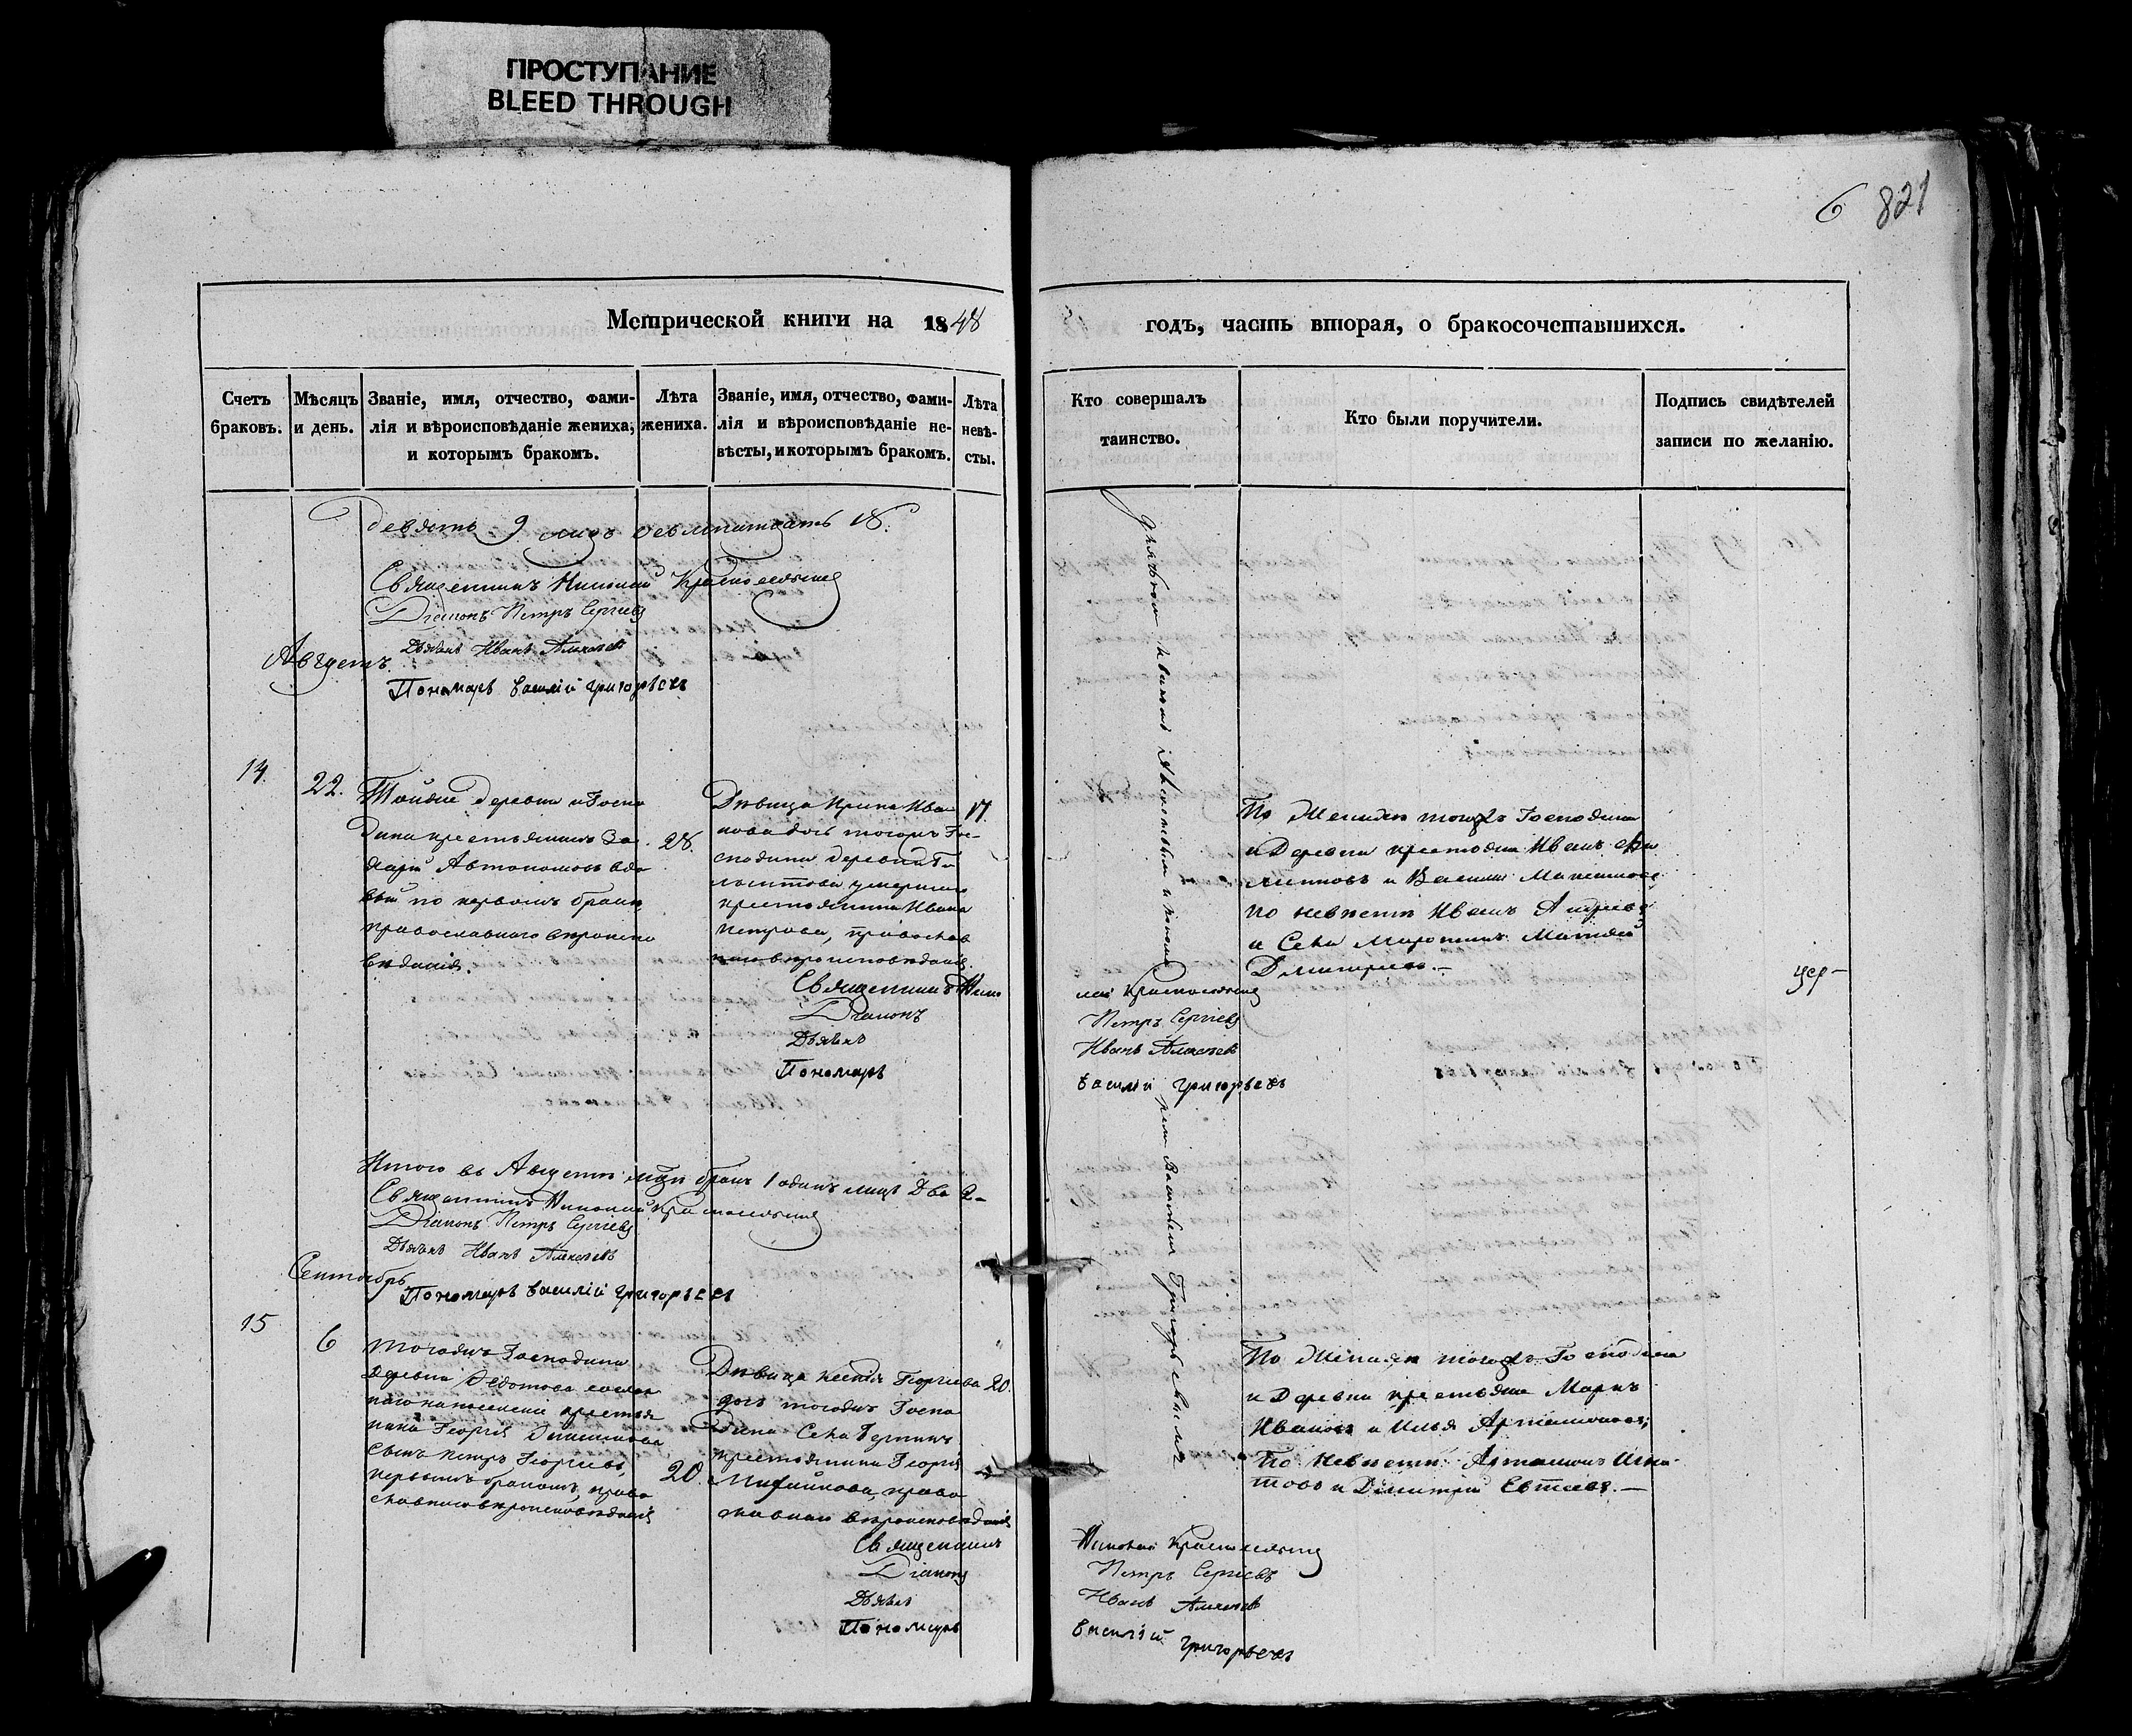 ПРОСТУПАНИЕ
BLEED THROUGH
6 821
Метрической книги на 1848
годъ, часть вторая, о бракосочетавшихся.
Счетъ браковъ.
Мѣсяцъ и день.
Званіе, имя, отчество, фами-
лія и вѣроисповѣданіе жениха,
и которымъ бракомъ.
Лѣта жениха.
Званіе, имя, отчество, фами-
лія и вѣроисповѣданіе не-
вѣсты, и которымъ бракомъ.
Лѣта невѣ-
сты.
Кто совершалъ
таинство.
Кто были поручители.
Подпись свидѣтелей
записи по желанію.
девять 9 лицъ осьмнатцать 18.
Священникъ Николай
Діаконъ Петръ Сергіевъ
Дьячекъ Иванъ Алексѣевъ
Августъ
Пономарь Василій Григорьевъ
14.
22.
Тойже деревни и Госпо
дина крестьянинъ За
харій Автономовъ вдо
вый по первомъ бракѣ
православнаго вѣроиспо
вѣданія.
28.
Дѣвица Ирина Ива
нова дочь тогожъ Гос-
подина деревни
умершаго
крестьянина Ивана
Петрова, православ
наго вѣроисповѣданія
17.
Священникъ Нико
Діаконъ
Дьячекъ
Пономарь
лай
Петръ Сергіевъ
Иванъ Алексѣевъ
Василій Григорьевъ
По Женихѣ тогожъ Господина
и Деревни крестьяне Иванъ Фи
липповъ и Василій
по невѣстѣ Иванъ Андреевъ
и Села Матвей
Дмитріевъ.—
Итого въ Августѣ мцѣ бракъ 1 одинъ лицъ Два 2-
Священникъ Николай
Діаконъ Петръ Сергіевъ
Дьячекъ Иванъ Алексѣевъ
Сентябрь
Пономарь Василій Григорьевъ
15
6
Тогожъ Господина
деревни Федотова
крестья
нина Георгія
сынъ Петръ Георгіевъ,
первымъ бракомъ, право
славнаго вѣроисповѣданія
20.
Дѣвица Георгіева
дочь тогожъ Госпо
дина Села
крестьянина Георгія
право
славнаго вѣроисповѣданія
20.
Священникъ
Діаконъ
Дьячекъ
Пономарь
Николай
Петръ Сергіевъ
Иванъ Алексѣевъ
Василій Григорьевъ
По Женихѣ тогожъ Господина
и Деревни крестьяне Маркъ
Ивановъ и Илья Артамоновъ;
По невѣстѣ Артамонъ
и Димитрій